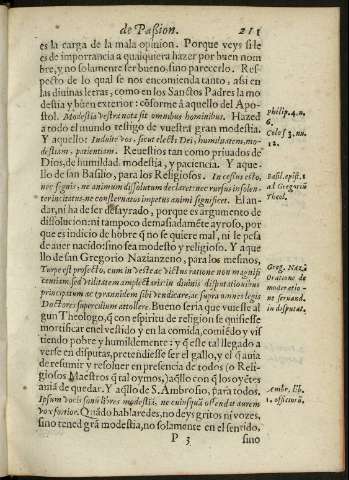 de Paßion. 211
es la carga de la mala opinion. Porque veys si le
es de importancia a qualquiera hazer por buen nom
bre, y no solamente ser bueno, sino parecerlo. Res-
pecto de lo qual se nos encomienda tanto, assi en
las diuinas letras, como en los Sanctos Padres la mo
destia y buẽ exterior: cõforme â aquello del Apos-
tol. Modestia vestra nota sit omnibus hominibus. Hazed
a todo el mundo testigo de vuestra gran modestia.
Y aquello: Induite vos, sicut electi Dei, humilitatem, mo-
destiam, patientiam. Reuestios tan como priuados de
Dios, de humildad, modestia, y paciencia. Y aque-
llo de san Basilio, para los Religiosos. In cessus esto,
nec segnis, ne animum dissolutum declaret: nec rursus insolen-
ter incitatus, ne consternatos impetus animi significet. El an-
dar, ni ha de ser desayrado, porque es argumento de
dissolucion: ni tampoco demasiadamẽte ayroso, por
que es indicio de hombre q̃ no se quiere mal, ni le pesa
de auer nacido: sino sea modesto y religioso. Y aque
llo de san Gregorio Nazianzeno, para los mesmos,
Turpe est profecto, cum in veste ac victus ratione non magnifi
centiam, sed vilitatem amplectaris in diuinis disputationibus
principatum ac tyrannidem sibi vendicare, ac supra omnes legis
Doctores supercilium attollere. Bueno seria que vuiesse al
gun Theologo, q̃ con espiritu de religion se quisiesse
mortificar en el vestido y en la comida, comiẽdo y vis
tiendo pobre y humildemente: y q̃ este tal llegado a
verse en disputas, pretendiesse ser el gallo, y el q̃ auia
de resumir y resoluer en presencia de todos (o Reli-
giosos) Maestros q̃ tal oymos,) aq̃llo con q̃ los oyẽtes
auiã de quedar. Y aq̃llo de S. Ambrosio, para todos.
Ipsum vocis sonũ libres modestiâ, ne cuiusquã offendat aurem
vox fortior. Quãdo hablaredes, no deys gritos ni vozes,
sino tened grã modestia, no solamente en el sentido,
P 3 sino
philip. 4. n.
6.
Colos 3. nu.
12.
Basil. epist. 1
al Gregoriũ
Theol.
Greg. Naz.
Oratione de
moderatio-
ne seruand.
in disputat.
Ambr. lib.
1. officiorũ.